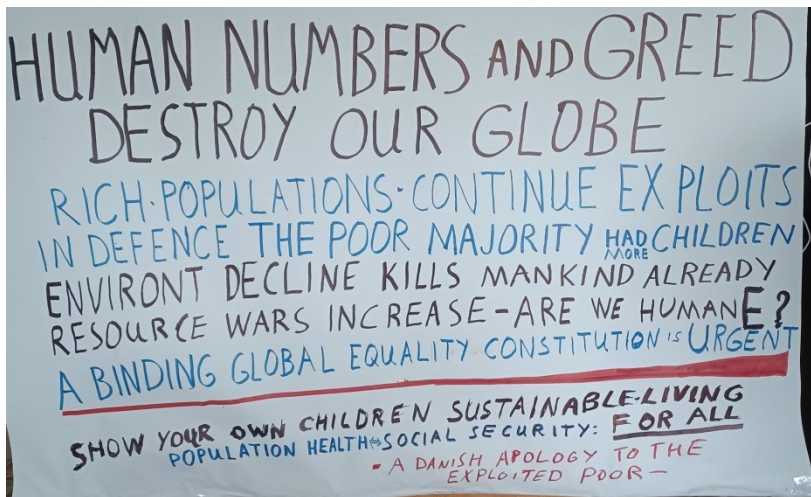 HUMAN NUMBERS AND GREED
DESTROY OUR GLOBE
RICH·POPULATIONS·CONTINUE EXPLOITS
IN DEFENCE THE POOR MAJORITY HAD MORE CHILDREN
ENVIRONT DECLINE KILLS MANKIND ALREADY
RESOURCE WARS INCREASE - ARE WE HUMANE?
A BINDING GLOBAL EQUALITY CONSTITUTION IS URGENT
SHOW YOUR OWN CHILDREN SUSTAINABLE·LIVING
POPULATION HEALTH⇔SOCIAL SECURITY: FOR ALL
- A DANISH APOLOGY TO THE
EXPLOITED POOR -